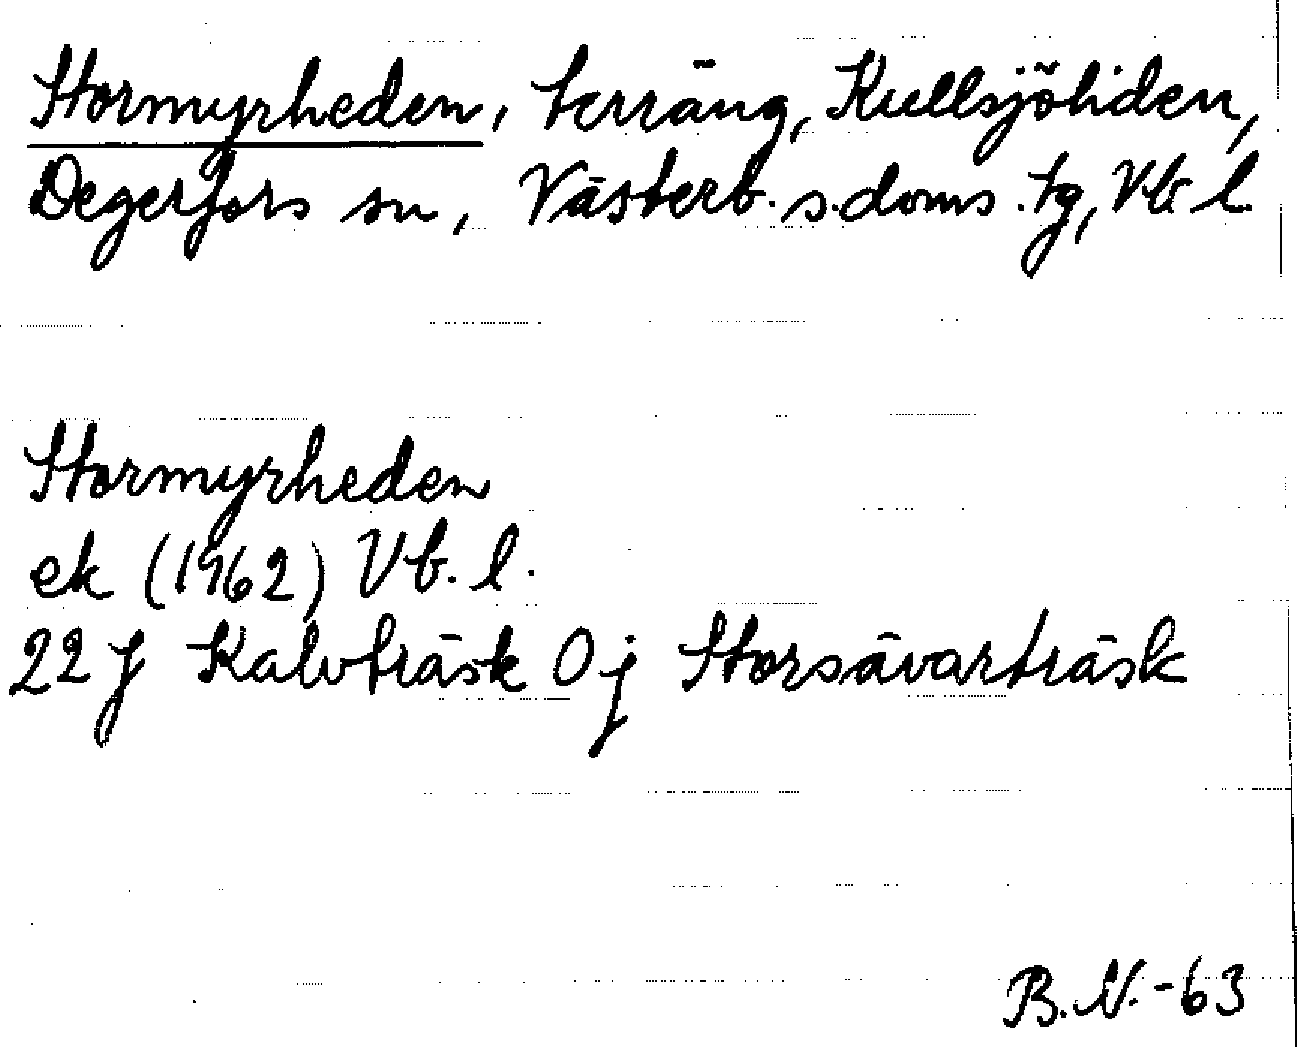 Stormyrheden, terräng, Kullsjöliden,
Degerfors sn, Västerb. s. doms. tg, Vb. l.
Stormyrheden
ek (1962) Vb. l.
22 J Kalvträsk 0j Storsävarträsk
B.N.-63